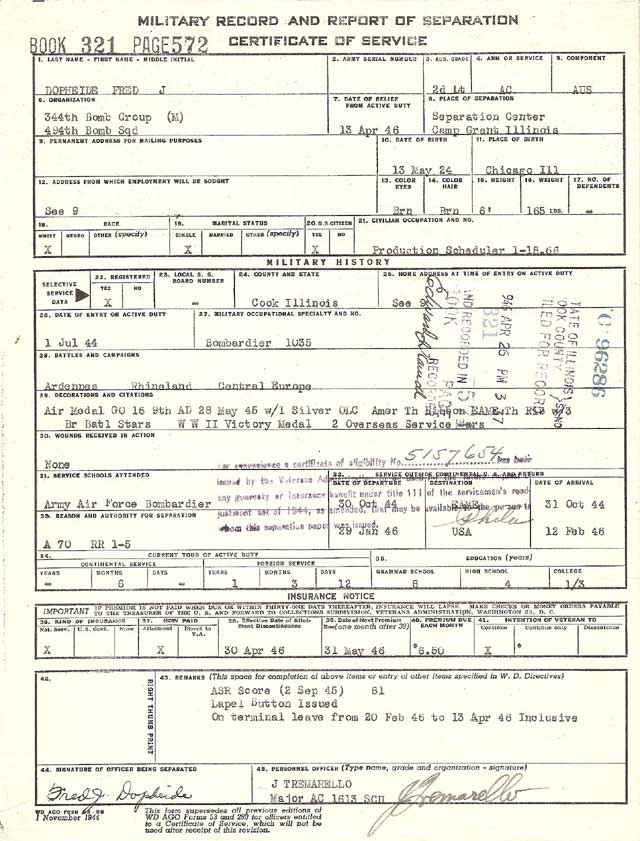 MILITARY RECORD AND REPORT OF SEPARATION
CERTIFICATE OF SERVICE
BOOK 321 PAGE 572
1. LAST NAME - FIRST NAME - MIDDLE INITIAL
2. ARMY SERIAL NUMBER
3. AUS. GRADE
4. ARM OR SERVICE
5. COMPONENT
DOPHEIDE FRED J
2d Lt
AC
AUS
6. ORGANIZATION
7. DATE OF RELIEF FROM ACTIVE DUTY
8. PLACE OF SEPARATION
344th Bomb Group (M)
494th Bomb Sqd
13 Apr 46
Separation Center
Camp Grant Illinois
9. PERMANENT ADDRESS FOR MAILING PURPOSES
10. DATE OF BIRTH
11. PLACE OF BIRTH
13 May 24
Chicago Ill
12. ADDRESS FROM WHICH EMPLOYMENT WILL BE SOUGHT
13. COLOR EYES
14. COLOR HAIR
15. HEIGHT
16. WEIGHT
17. NO. OF DEPENDENTS
See 9
Brn
Brn
6'
165 LBS.
-
18. RACE
19. MARITAL STATUS
20. U.S. CITIZEN
21. CIVILIAN OCCUPATION AND NO.
WHITE NEGRO OTHER (specify)
SINGLE MARRIED OTHER (specify)
YES NO
X
X
X
Production Scheduler 1-18.66
MILITARY HISTORY
SELECTIVE SERVICE DATA
22. REGISTERED
YES NO
23. LOCAL S. S. BOARD NUMBER
24. COUNTY AND STATE
25. HOME ADDRESS AT TIME OF ENTRY ON ACTIVE DUTY
X
-
Cook Illinois
See
26. DATE OF ENTRY ON ACTIVE DUTY
27. MILITARY OCCUPATIONAL SPECIALTY AND NO.
1 Jul 44
Bombardier 1035
28. BATTLES AND CAMPAIGNS
Ardennes Rhineland Central Europe
29. DECORATIONS AND CITATIONS
Air Medal GO 16 9th AD 28 May 45 w/1 Silver OLC Amer Th Ribbon EAME Th Rib w/3
Br Batl Stars W W II Victory Medal 2 Overseas Service Bars
STATE OF ILLINOIS
COOK COUNTY
FILED FOR RECORD
C 96286
946 APR 26 PM 3 47
AND RECORDED IN
BOOK PAGE
321 572
30. WOUNDS RECEIVED IN ACTION
None
a certificate of eligibility No. 5157654 has been
issued by the Veterans
any guaranty or insurance benefit under title 111 of the servicemen's read-
justment act of 1944, as amended, that may be available to the person to
whom this separation paper was issued.
31. SERVICE SCHOOLS ATTENDED
32. SERVICE OUTSIDE CONTINENTAL U. S. AND RETURN
DATE OF DEPARTURE
DESTINATION
DATE OF ARRIVAL
Army Air Force Bombardier
30 Oct 44
31 Oct 44
33. REASON AND AUTHORITY FOR SEPARATION
29 Jan 46
USA
12 Feb 46
A 70 RR 1-5
34. CURRENT TOUR OF ACTIVE DUTY
35. EDUCATION (years)
CONTINENTAL SERVICE
FOREIGN SERVICE
YEARS MONTHS DAYS YEARS MONTHS DAYS
GRAMMAR SCHOOL HIGH SCHOOL COLLEGE
- 6 - 1 3 12 8 4 1/3
INSURANCE NOTICE
IMPORTANT IF PREMIUM IS NOT PAID WHEN DUE OR WITHIN THIRTY-ONE DAYS THEREAFTER, INSURANCE WILL LAPSE. MAKE CHECKS OR MONEY ORDERS PAYABLE
TO THE TREASURER OF THE U. S. AND FORWARD TO COLLECTIONS SUBDIVISION, VETERANS ADMINISTRATION, WASHINGTON 25, D. C.
36. KIND OF INSURANCE
37. HOW PAID
38. Effective Date of Allotment Discontinuance
39. Date of Next Premium Due (one month after 38)
40. PREMIUM DUE EACH MONTH
41. INTENTION OF VETERAN TO
Nat. Serv. U.S. Govt. None
Allotment Direct to V.A.
Continue Continue only Discontinue
X
X
30 Apr 46
31 May 46
$ 6.50
X
$
42.
RIGHT THUMB PRINT
43. REMARKS (This space for completion of above items or entry of other items specified in W. D. Directives)
ASR Score (2 Sep 45) 81
Lapel Button Issued
On terminal leave from 20 Feb 46 to 13 Apr 46 Inclusive
44. SIGNATURE OF OFFICER BEING SEPARATED
45. PERSONNEL OFFICER (Type name, grade and organization - signature)
Fred J. Dopheide
J TREMARELLO
Major AC 1613 SCU
J Tremarello
WD AGO FORM 53-98
1 November 1944
This form supersedes all previous editions of
WD AGO Forms 53 and 280 for officers entitled
to a Certificate of Service, which will not be
used after receipt of this revision.